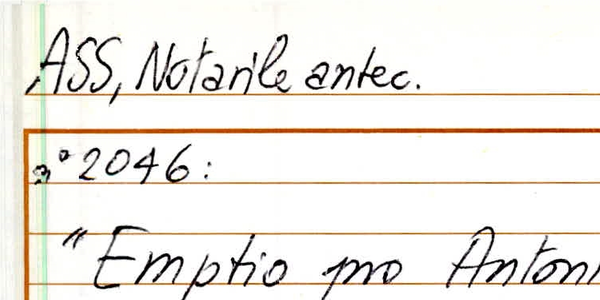 ASS, Notarile antec.
n° 2046:
"Emptio pro Antoni